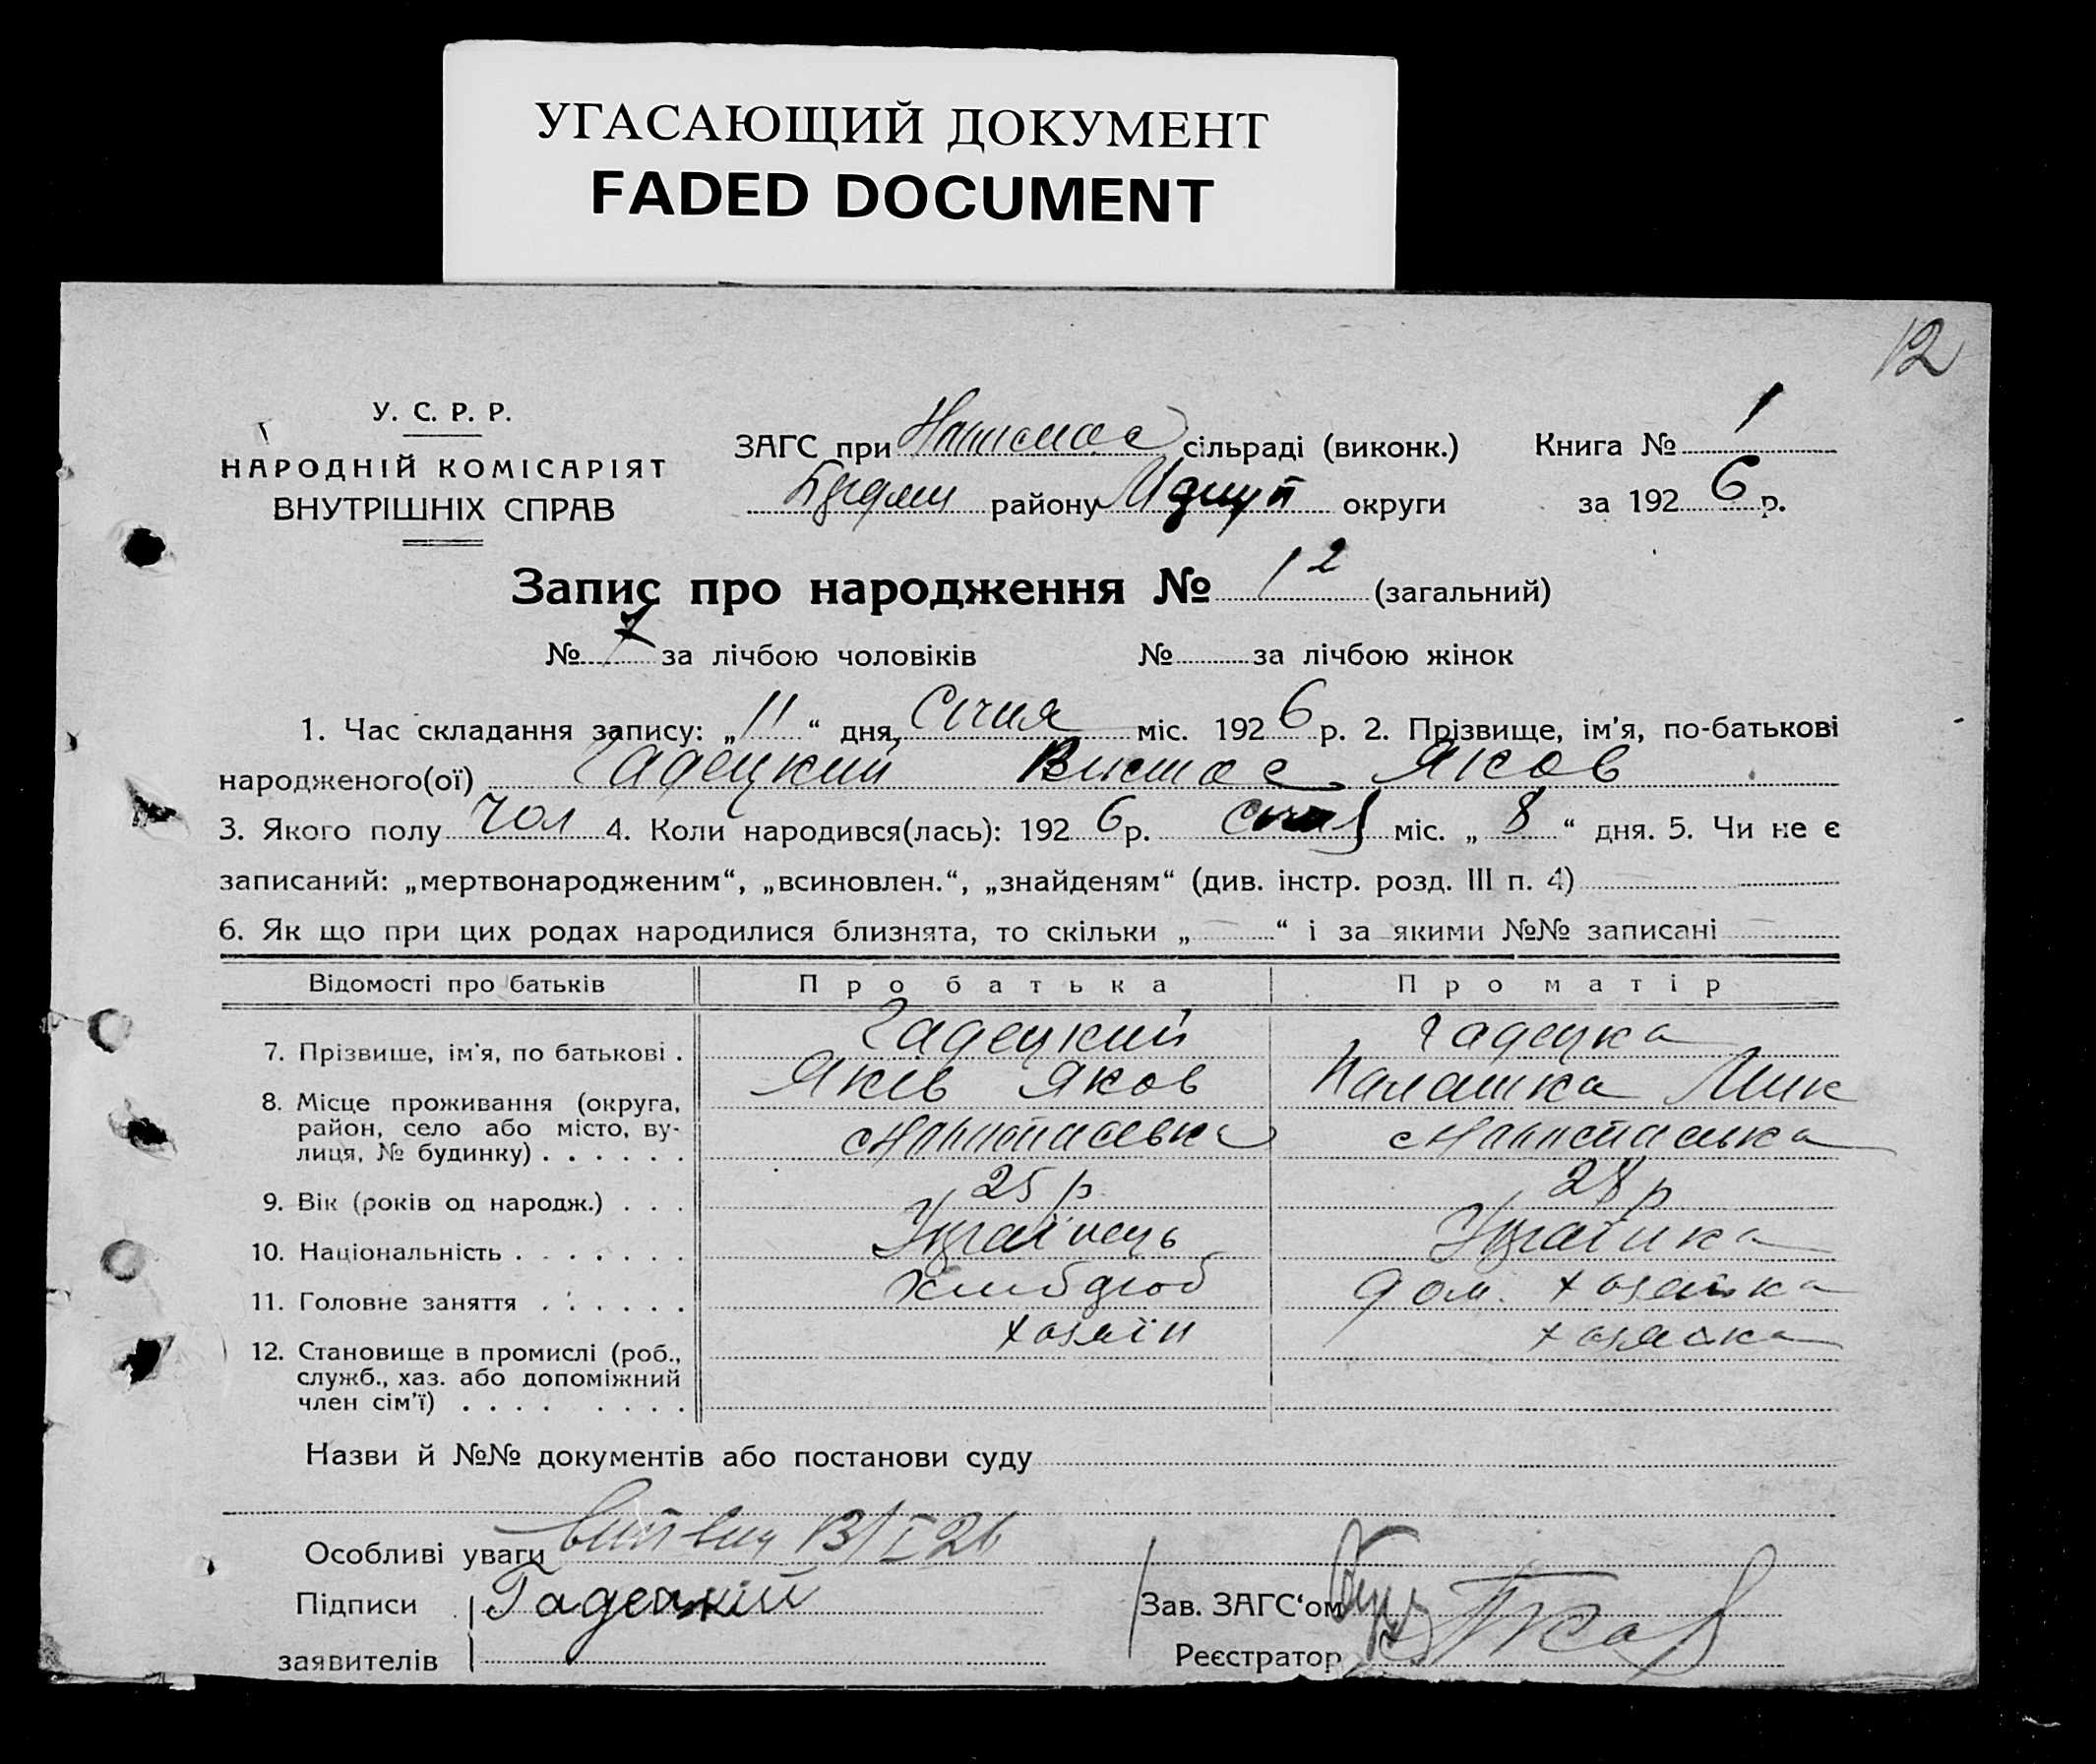 УГАСАЮЩИЙ ДОКУМЕНТ
FADED DOCUMENT
12
У. С. Р. Р.
НАРОДНІЙ КОМІСАРІЯТ
ВНУТРІШНІХ СПРАВ
ЗАГС при сільраді (виконк.)
району округи
Книга № 1
за 1926 р.
Запис про народження № 12 (загальний)
№ 7 за лічбою чоловіків № за лічбою жінок
1. Час складання запису: „11“ дня, Січня міс. 1926 р. 2. Прізвище, ім'я, по-батькові
народженого(ої) Гадецкий Яков
3. Якого полу чол 4. Коли народився(лась): 1926 р. Січня міс. „8“ дня. 5. Чи не є
записаний: „мертвонародженим“, „всиновлен.“, „знайденям“ (див. інстр. розд. III п. 4)
6. Як що при цих родах народилися близнята, то скільки „ “ і за якими №№ записані
Відомості про батьків Про батька Про матір
7. Прізвище, ім'я, по батькові . Гадецкий Гадецка
Яків Яков Палашка Мик
8. Місце проживання (округа,
район, село або місто, ву-
лиця, № будинку) . . . . . .
9. Вік (років од народж.) . . . 25 р 28 р
10. Національність . . . . . . . Українець Українка
11. Головне заняття . . . . . . Хлибороб дом. хозяйка
12. Становище в промислі (роб., хозяїн хозяйка
служб., хаз. або допоміжний
член сім'ї) . . . . . . . .
Назви й №№ документів або постанови суду
Особливі уваги 13/I 26
Підписи Гадецкий
заявителів
Зав. ЗАГС'ом
Реєстратор